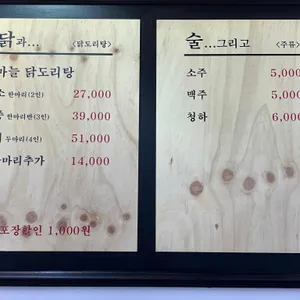 닭과... <닭도리탕>
마늘 닭도리탕
소 한마리(2인) 27,000
한마리반(3인) 39,000
두마리(4인) 51,000
마리추가 14,000
포장할인 1,000원
술...그리고 <주류>
소주 5,000
맥주 5,000
청하 6,000